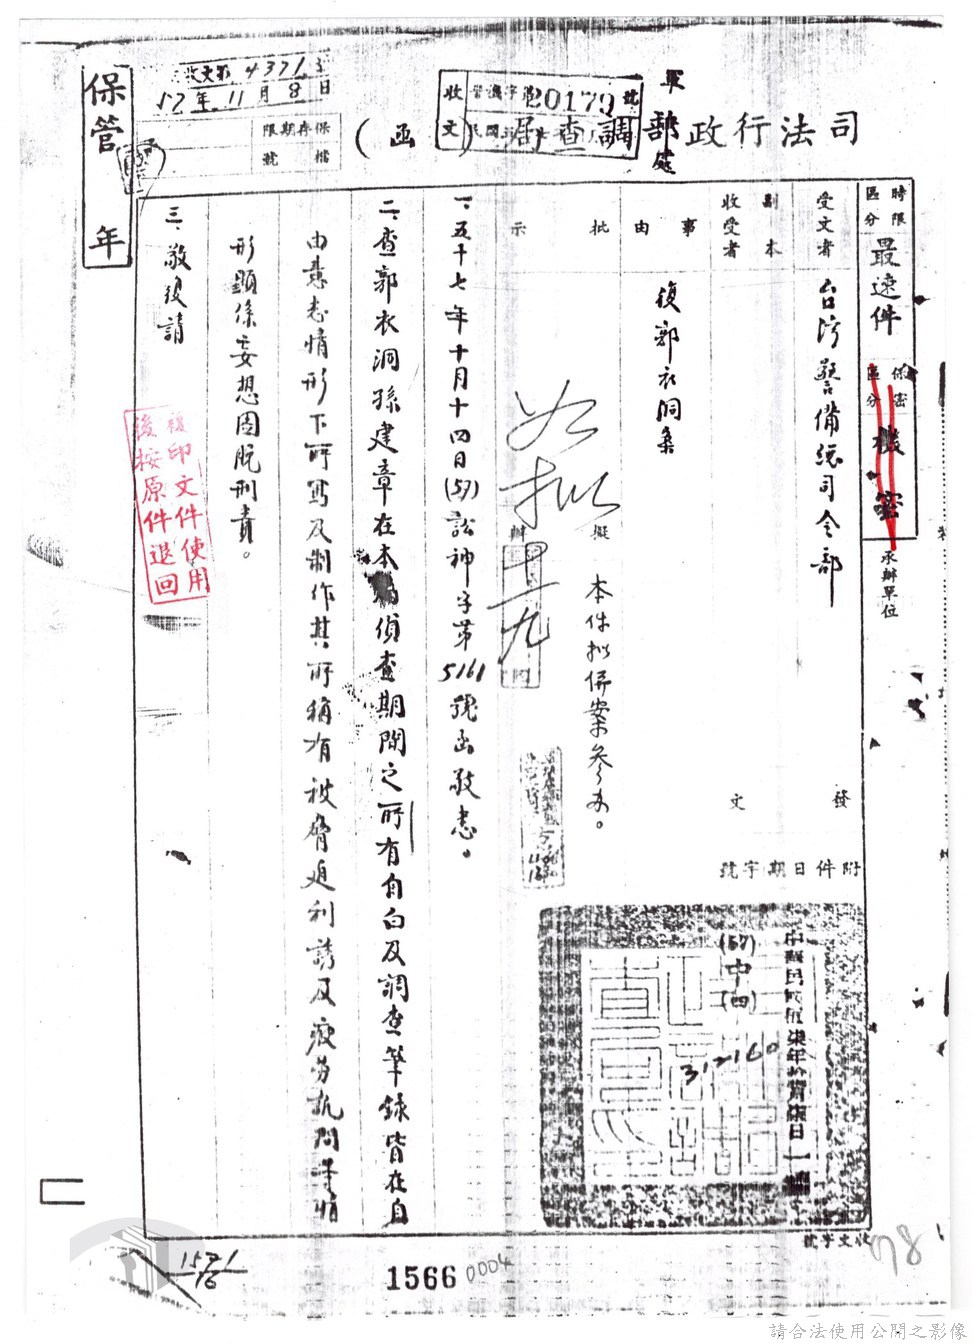 司法行政部調查局（函）
收文
20179號
軍
處
收文第4371號
57年11月8日
保存期限
檔號
保管 年
時限區分
最速件
保密區分
機密
承辦單位
受文者
台湾警備總司令部
副本收受者
發文
附件日期字號
中華民國伍柒年拾壹月柒日
(57)中(四)
312160
事由
復郭衣洞案
批示
擬辦
本件拟併案參办。
如拟
十一九
一、五十七年十月十四日(57)訟神字第5161號函敬悉。
二、查郭衣洞孫建章在本局偵查期間之所有自白及調查筆錄皆在自
由意志情形下所寫及制作其所稱有被脅迫利誘及疲劳訊問等情
形顯係妄想圖脫刑責。
三、敬復請
複印文件使用
後按原件退回
收文字號
78
1571
16
1566
0004
請合法使用公開之影像